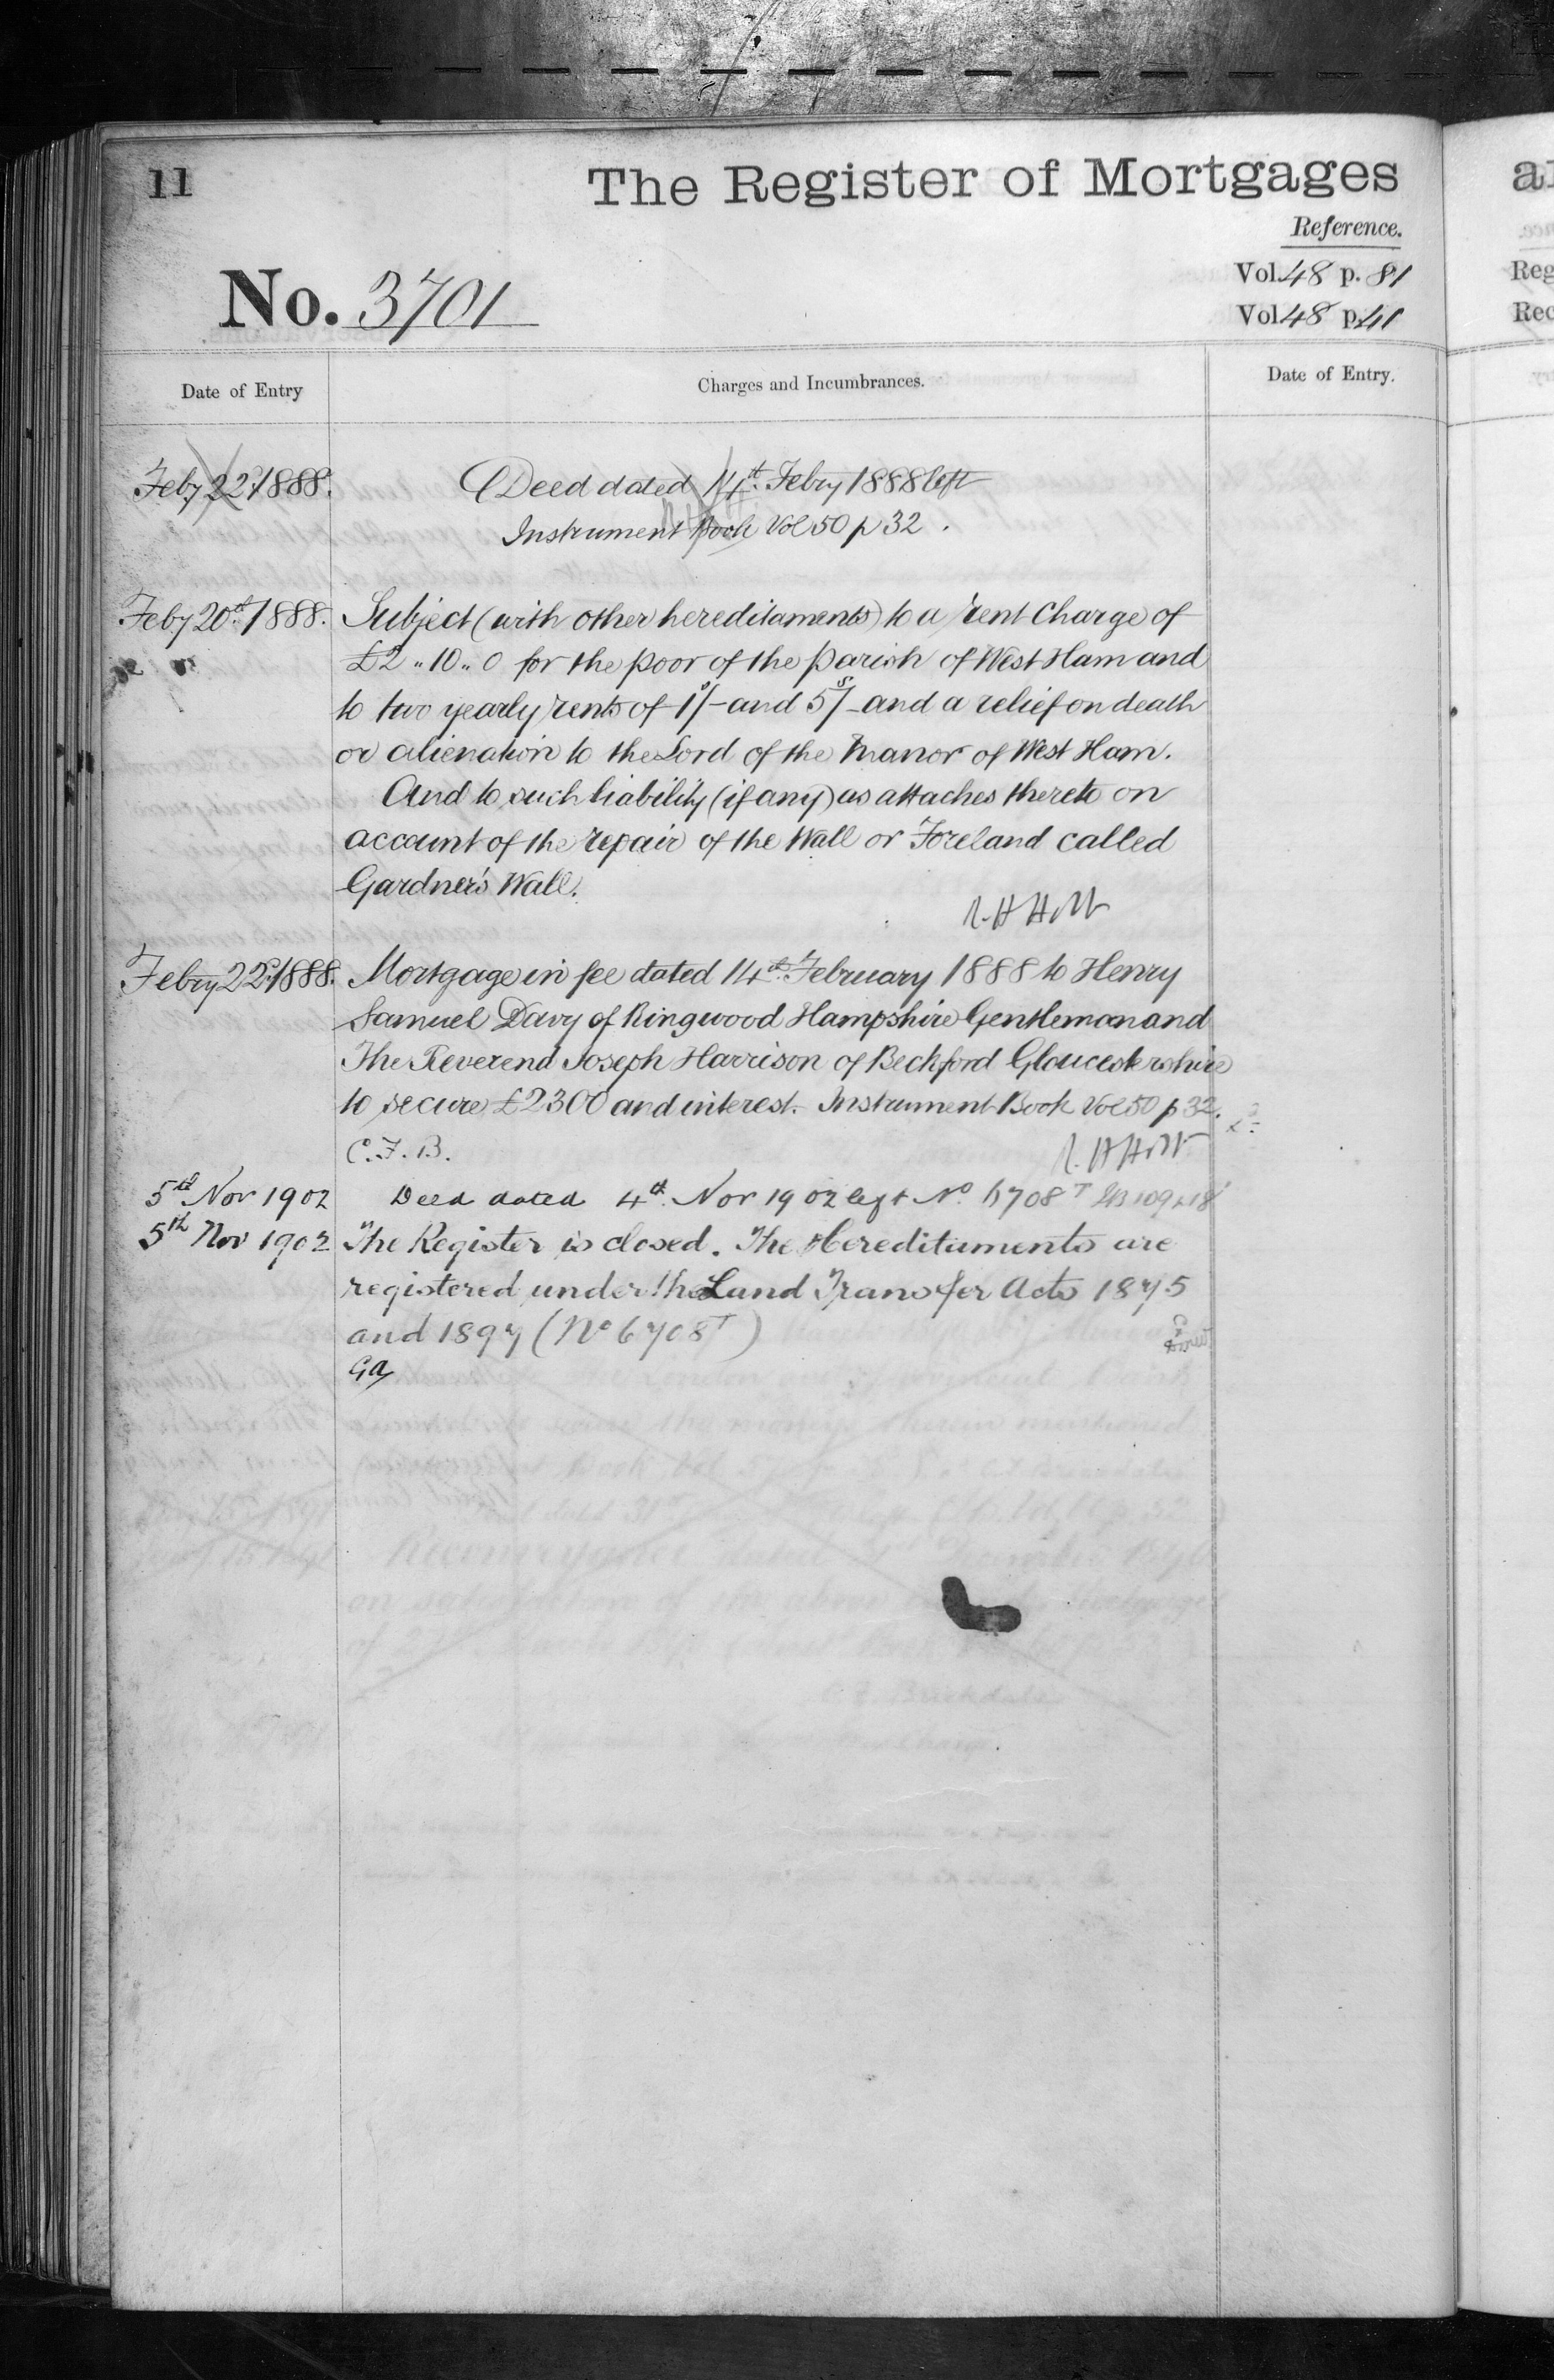 11
The Register of Mortgages
Reference.
No. 3701
Vol. 48 p. 81
Vol. 48 p. 41
Date of Entry
Charges and Incumbrances.
Date of Entry.
Feby 22d. 1888. Deed dated 14th. Febry 1888 left
Instrument Book Vol 50 p 32.
Feby 20th. 1888. Subject (with other hereditaments) to a rent Charge of
£2 .. 10 .. 0 for the poor of the parish of West Ham and
to two yearly rents of 1s/- and 5s/- and a relief on death
or alienation to the Lord of the Manor of West Ham.
And to such liability (if any) as attaches thereto on
account of the repair of the Wall or Foreland called
Gardner's Wall.
R. H Holt
Febry 22d. 1888. Mortgage in fee dated 14th. February 1888 to Henry
Samuel Davy of Ringwood Hampshire Gentleman and
The Reverend Joseph Harrison of Beckford Gloucestershire
to secure £2300 and interest. Instrument Book Vol 50 p 32.
C. F. B. R. H Holt
5th Nov 1902 Deed dated 4th. Nov 1902 left No. 6708T
5th Nov 1902 The Register is closed. The Hereditaments are
registered under the Land Transfer Acts 1875
and 1897 (No 6708T)
Ga
al
Reg
Rec